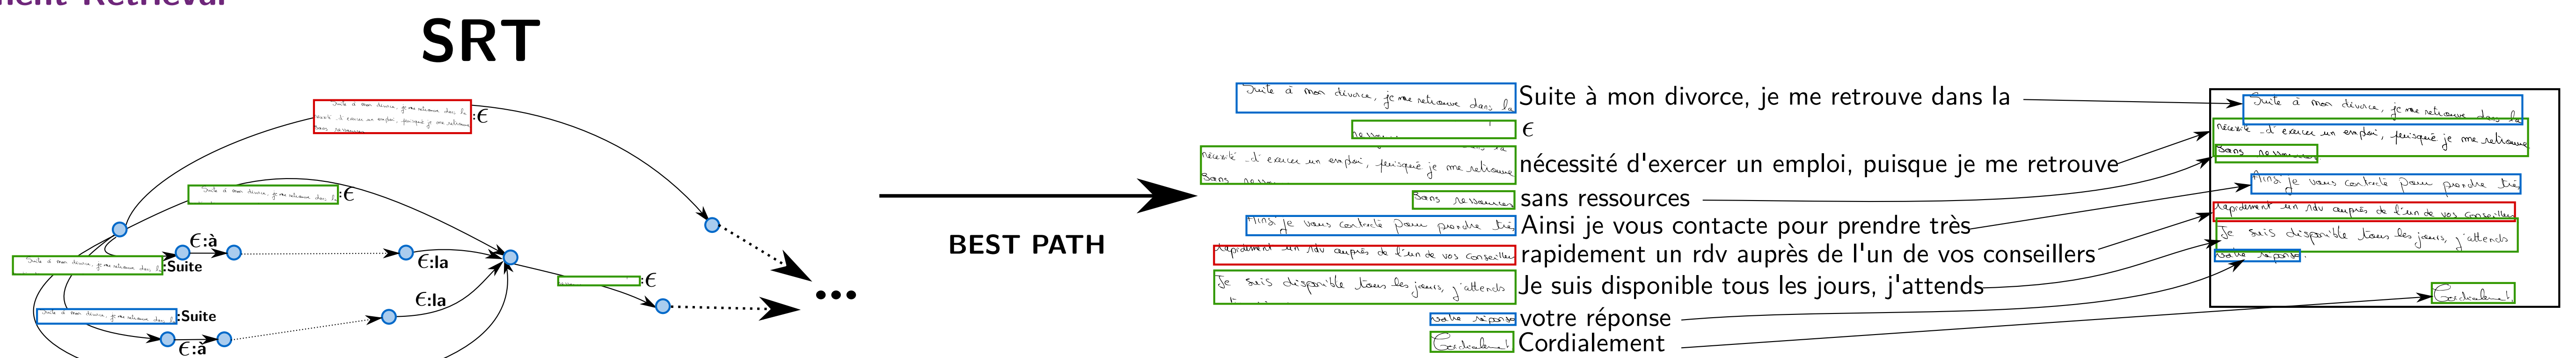 ment Retrieval
SRT
Suite à mon divorce, je me retrouve dans la
nécessité d'exercer un emploi, puisque je me retrouve
sans ressources
:ϵ
Suite à mon divorce, je me retrouve dans la
:ϵ
ϵ:à
ϵ:la
Suite à mon divorce, je me retrouve dans la
:Suite
:ϵ
ϵ:la
Suite à mon divorce, je me retrouve dans la
:Suite
ϵ:à
...
BEST PATH
Suite à mon divorce, je me retrouve dans la
Suite à mon divorce, je me retrouve dans la
ϵ
nécessité d'exercer un emploi, puisque je me retrouve
nécessité d'exercer un emploi, puisque je me retrouve
sans ressources
sans ressources
Ainsi je vous contacte pour prendre très
Ainsi je vous contacte pour prendre très
rapidement un rdv auprès de l'un de vos conseillers
rapidement un rdv auprès de l'un de vos conseillers
Je suis disponible tous les jours, j'attends
Je suis disponible tous les jours, j'attends
votre réponse
votre réponse
Cordialement
Cordialement
Suite à mon divorce, je me retrouve dans la
nécessité d'exercer un emploi, puisque je me retrouve
sans ressources
Ainsi je vous contacte pour prendre très
rapidement un rdv auprès de l'un de vos conseillers
Je suis disponible tous les jours, j'attends
votre réponse.
Cordialement